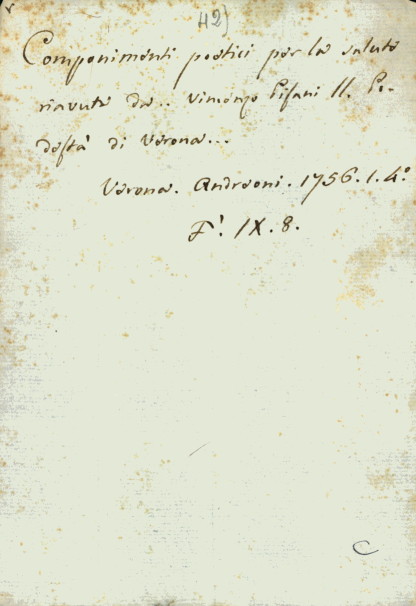 42)
Componimenti poetici per la salute
riavuta da.. Vincenzo Pisani II. Po-
destà di Verona...
Verona. Andreoni. 1756. 1. 4.º
F. IX. 8.
C